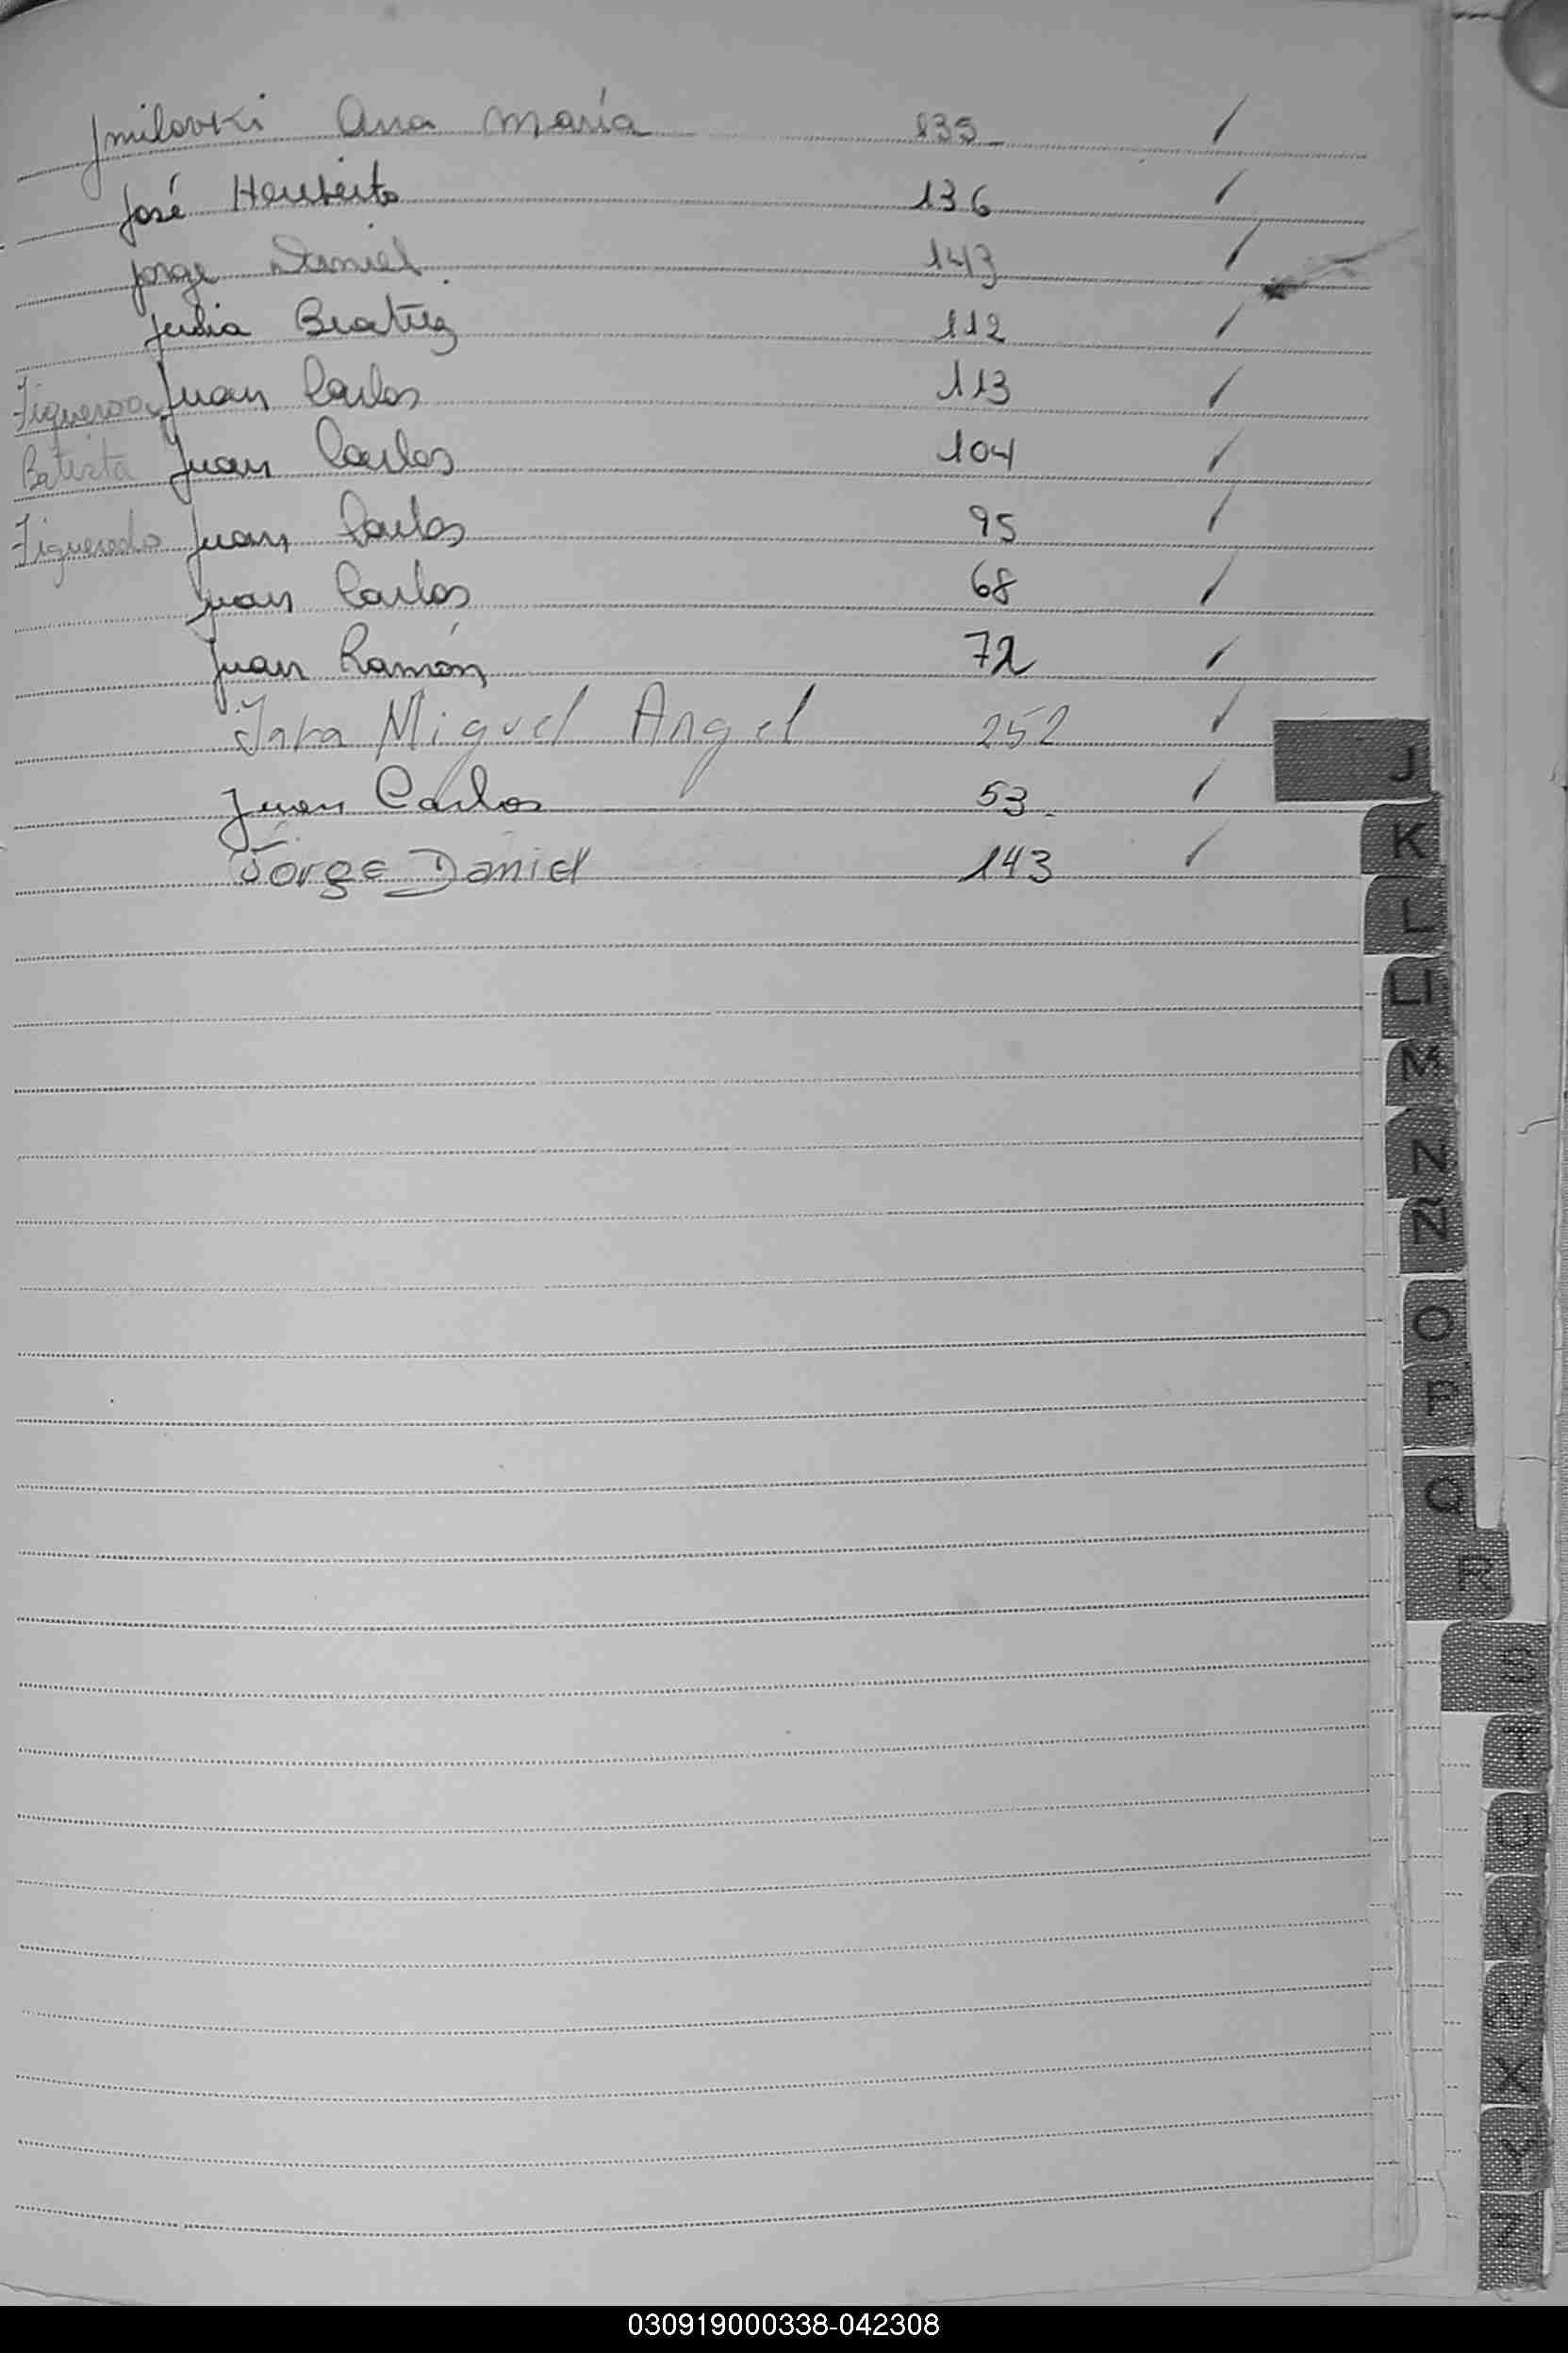 Jmilovki Ana María 135 /
José Heriberto 136 /
Jorge Daniel 143 /
Julia Beatriz 112 /
Figueroa Juan Carlos 113 /
Batista Juan Carlos 104 /
Figueredo Juan Carlos 95 /
Juan Carlos 68 /
Juan Ramón 72 /
Jara Miguel Angel 252 /
Juan Carlos 53. /
Jorge Daniel 143 /
J
K
L
Ll
M
N
Ñ
O
P
Q
R
S
T
U
V
W
X
Y
Z
030919000338-042308